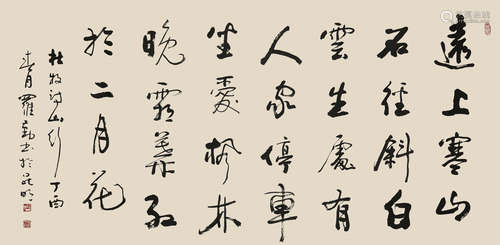 遠上寒山
石徑斜白
雲生處有
人家停車
坐愛楓林
晚霜葉紅
於二月花
杜牧詩山行丁酉
春月羅書於昆明